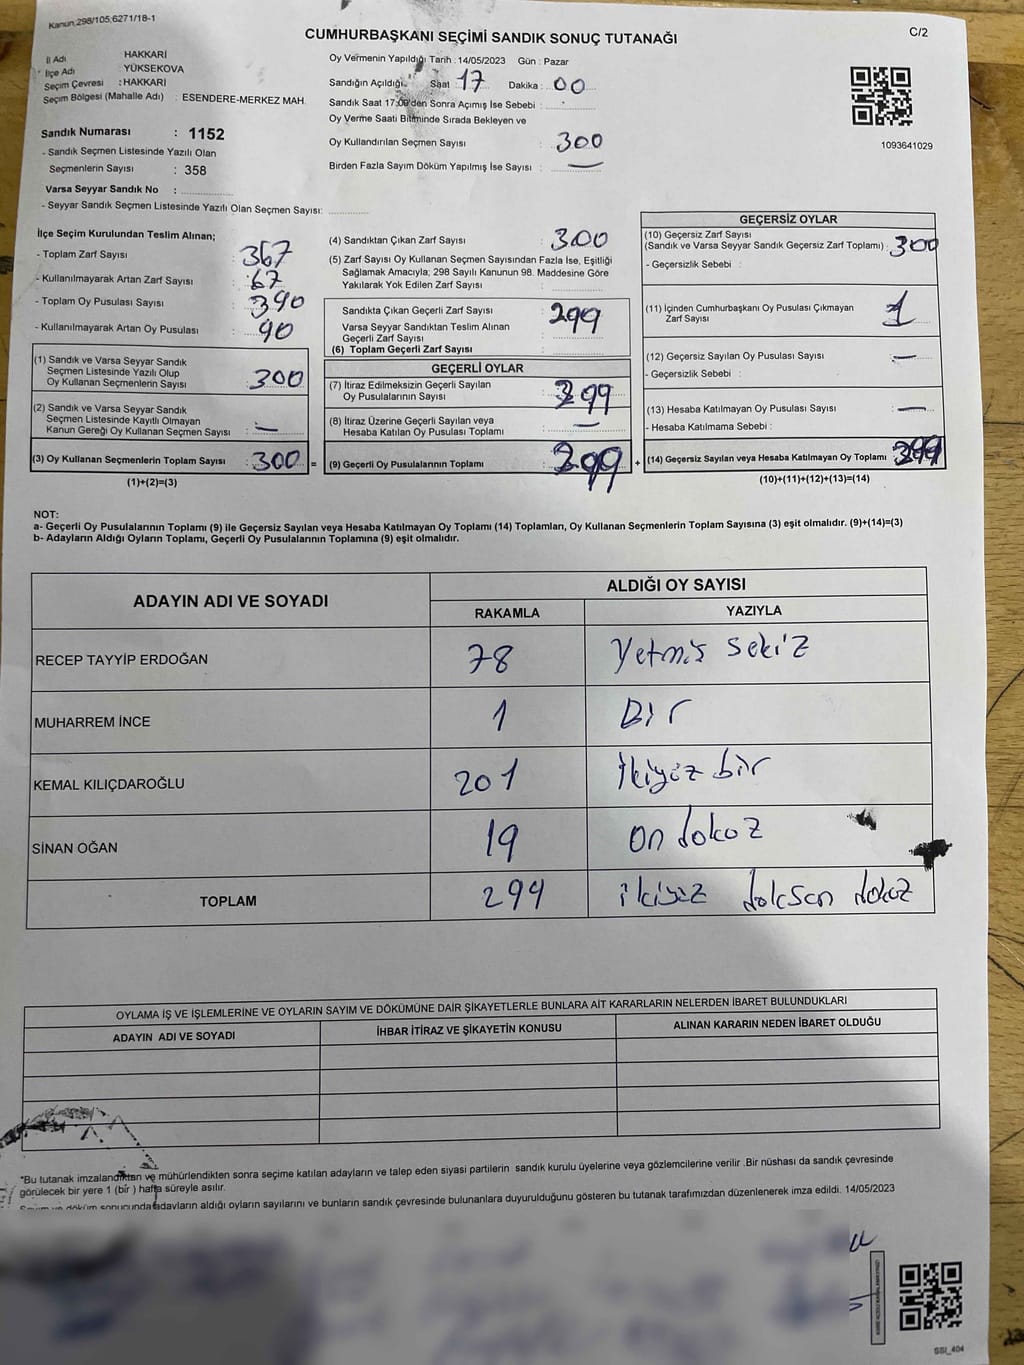 Kanun,298/105;6271/18-1
CUMHURBAŞKANI SEÇİMİ SANDIK SONUÇ TUTANAĞI
C/2
İl Adı HAKKARİ
İlçe Adı YÜKSEKOVA
Seçim Çevresi : HAKKARİ
Seçim Bölgesi (Mahalle Adı) : ESENDERE-MERKEZ MAH.
Sandık Numarası : 1152
- Sandık Seçmen Listesinde Yazılı Olan
Seçmenlerin Sayısı : 358
Varsa Seyyar Sandık No :
- Seyyar Sandık Seçmen Listesinde Yazılı Olan Seçmen Sayısı:
Oy Vermenin Yapıldığı Tarih : 14/05/2023 Gün : Pazar
Sandığın Açıldığı Saat 17 Dakika : 00
Sandık Saat 17:00'den Sonra Açımış İse Sebebi :
Oy Verme Saati Bitiminde Sırada Bekleyen ve
Oy Kullandırılan Seçmen Sayısı : 300
Birden Fazla Sayım Döküm Yapılmış İse Sayısı : —
1093641029
İlçe Seçim Kurulundan Teslim Alınan;
- Toplam Zarf Sayısı : 367
- Kullanılmayarak Artan Zarf Sayısı : 67
- Toplam Oy Pusulası Sayısı : 390
- Kullanılmayarak Artan Oy Pusulası : 90
(1) Sandık ve Varsa Seyyar Sandık
Seçmen Listesinde Yazılı Olup
Oy Kullanan Seçmenlerin Sayısı : 300
(2) Sandık ve Varsa Seyyar Sandık
Seçmen Listesinde Kayıtlı Olmayan
Kanun Gereği Oy Kullanan Seçmen Sayısı : —
(3) Oy Kullanan Seçmenlerin Toplam Sayısı : 300 =
(1)+(2)=(3)
(4) Sandıktan Çıkan Zarf Sayısı : 300
(5) Zarf Sayısı Oy Kullanan Seçmen Sayısından Fazla İse, Eşitliği
Sağlamak Amacıyla; 298 Sayılı Kanunun 98. Maddesine Göre
Yakılarak Yok Edilen Zarf Sayısı :
Sandıkta Çıkan Geçerli Zarf Sayısı : 299
Varsa Seyyar Sandıktan Teslim Alınan
Geçerli Zarf Sayısı :
(6) Toplam Geçerli Zarf Sayısı :
GEÇERLİ OYLAR
(7) İtiraz Edilmeksizin Geçerli Sayılan
Oy Pusulalarının Sayısı : 299
(8) İtiraz Üzerine Geçerli Sayılan veya
Hesaba Katılan Oy Pusulası Toplamı : —
(9) Geçerli Oy Pusulalarının Toplamı : 299 +
GEÇERSİZ OYLAR
(10) Geçersiz Zarf Sayısı
(Sandık ve Varsa Seyyar Sandık Geçersiz Zarf Toplamı) : 300
- Geçersizlik Sebebi :
(11) İçinden Cumhurbaşkanı Oy Pusulası Çıkmayan
Zarf Sayısı : 1
(12) Geçersiz Sayılan Oy Pusulası Sayısı : —
- Geçersizlik Sebebi :
(13) Hesaba Katılmayan Oy Pusulası Sayısı : —
- Hesaba Katılmama Sebebi :
(14) Geçersiz Sayılan veya Hesaba Katılmayan Oy Toplamı :
(10)+(11)+(12)+(13)=(14)
NOT:
a- Geçerli Oy Pusulalarının Toplamı (9) ile Geçersiz Sayılan veya Hesaba Katılmayan Oy Toplamı (14) Toplamları, Oy Kullanan Seçmenlerin Toplam Sayısına (3) eşit olmalıdır. (9)+(14)=(3)
b- Adayların Aldığı Oyların Toplamı, Geçerli Oy Pusulalarının Toplamına (9) eşit olmalıdır.
ADAYIN ADI VE SOYADI ALDIĞI OY SAYISI
RAKAMLA YAZIYLA
RECEP TAYYİP ERDOĞAN 78 Yetmiş sekiz
MUHARREM İNCE 1 Bir
KEMAL KILIÇDAROĞLU 201 İkiyüz bir
SİNAN OĞAN 19 on dokuz
TOPLAM 299 ikiyüz doksan dokuz
OYLAMA İŞ VE İŞLEMLERİNE VE OYLARIN SAYIM VE DÖKÜMÜNE DAİR ŞİKAYETLERLE BUNLARA AİT KARARLARIN NELERDEN İBARET BULUNDUKLARI
ADAYIN ADI VE SOYADI İHBAR İTİRAZ VE ŞİKAYETİN KONUSU ALINAN KARARIN NEDEN İBARET OLDUĞU
*Bu tutanak imzalandıktan ve mühürlendikten sonra seçime katılan adayların ve talep eden siyasi partilerin sandık kurulu üyelerine veya gözlemcilerine verilir .Bir nüshası da sandık çevresinde
görülecek bir yere 1 (bir ) hafta süreyle asılır.
Sayım ve döküm sonucunda adayların aldığı oyların sayılarını ve bunların sandık çevresinde bulunanlara duyurulduğunu gösteren bu tutanak tarafımızdan düzenlenerek imza edildi. 14/05/2023
SSI_404